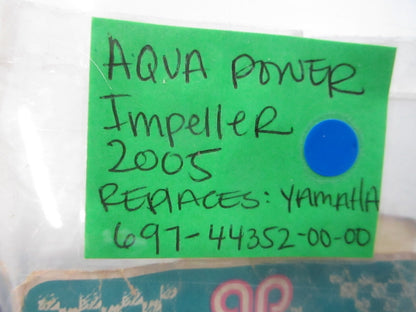 AQUA POWER
ImpelleR
2005
REPlACES: YAMAHA
697-44352-00-00
ap